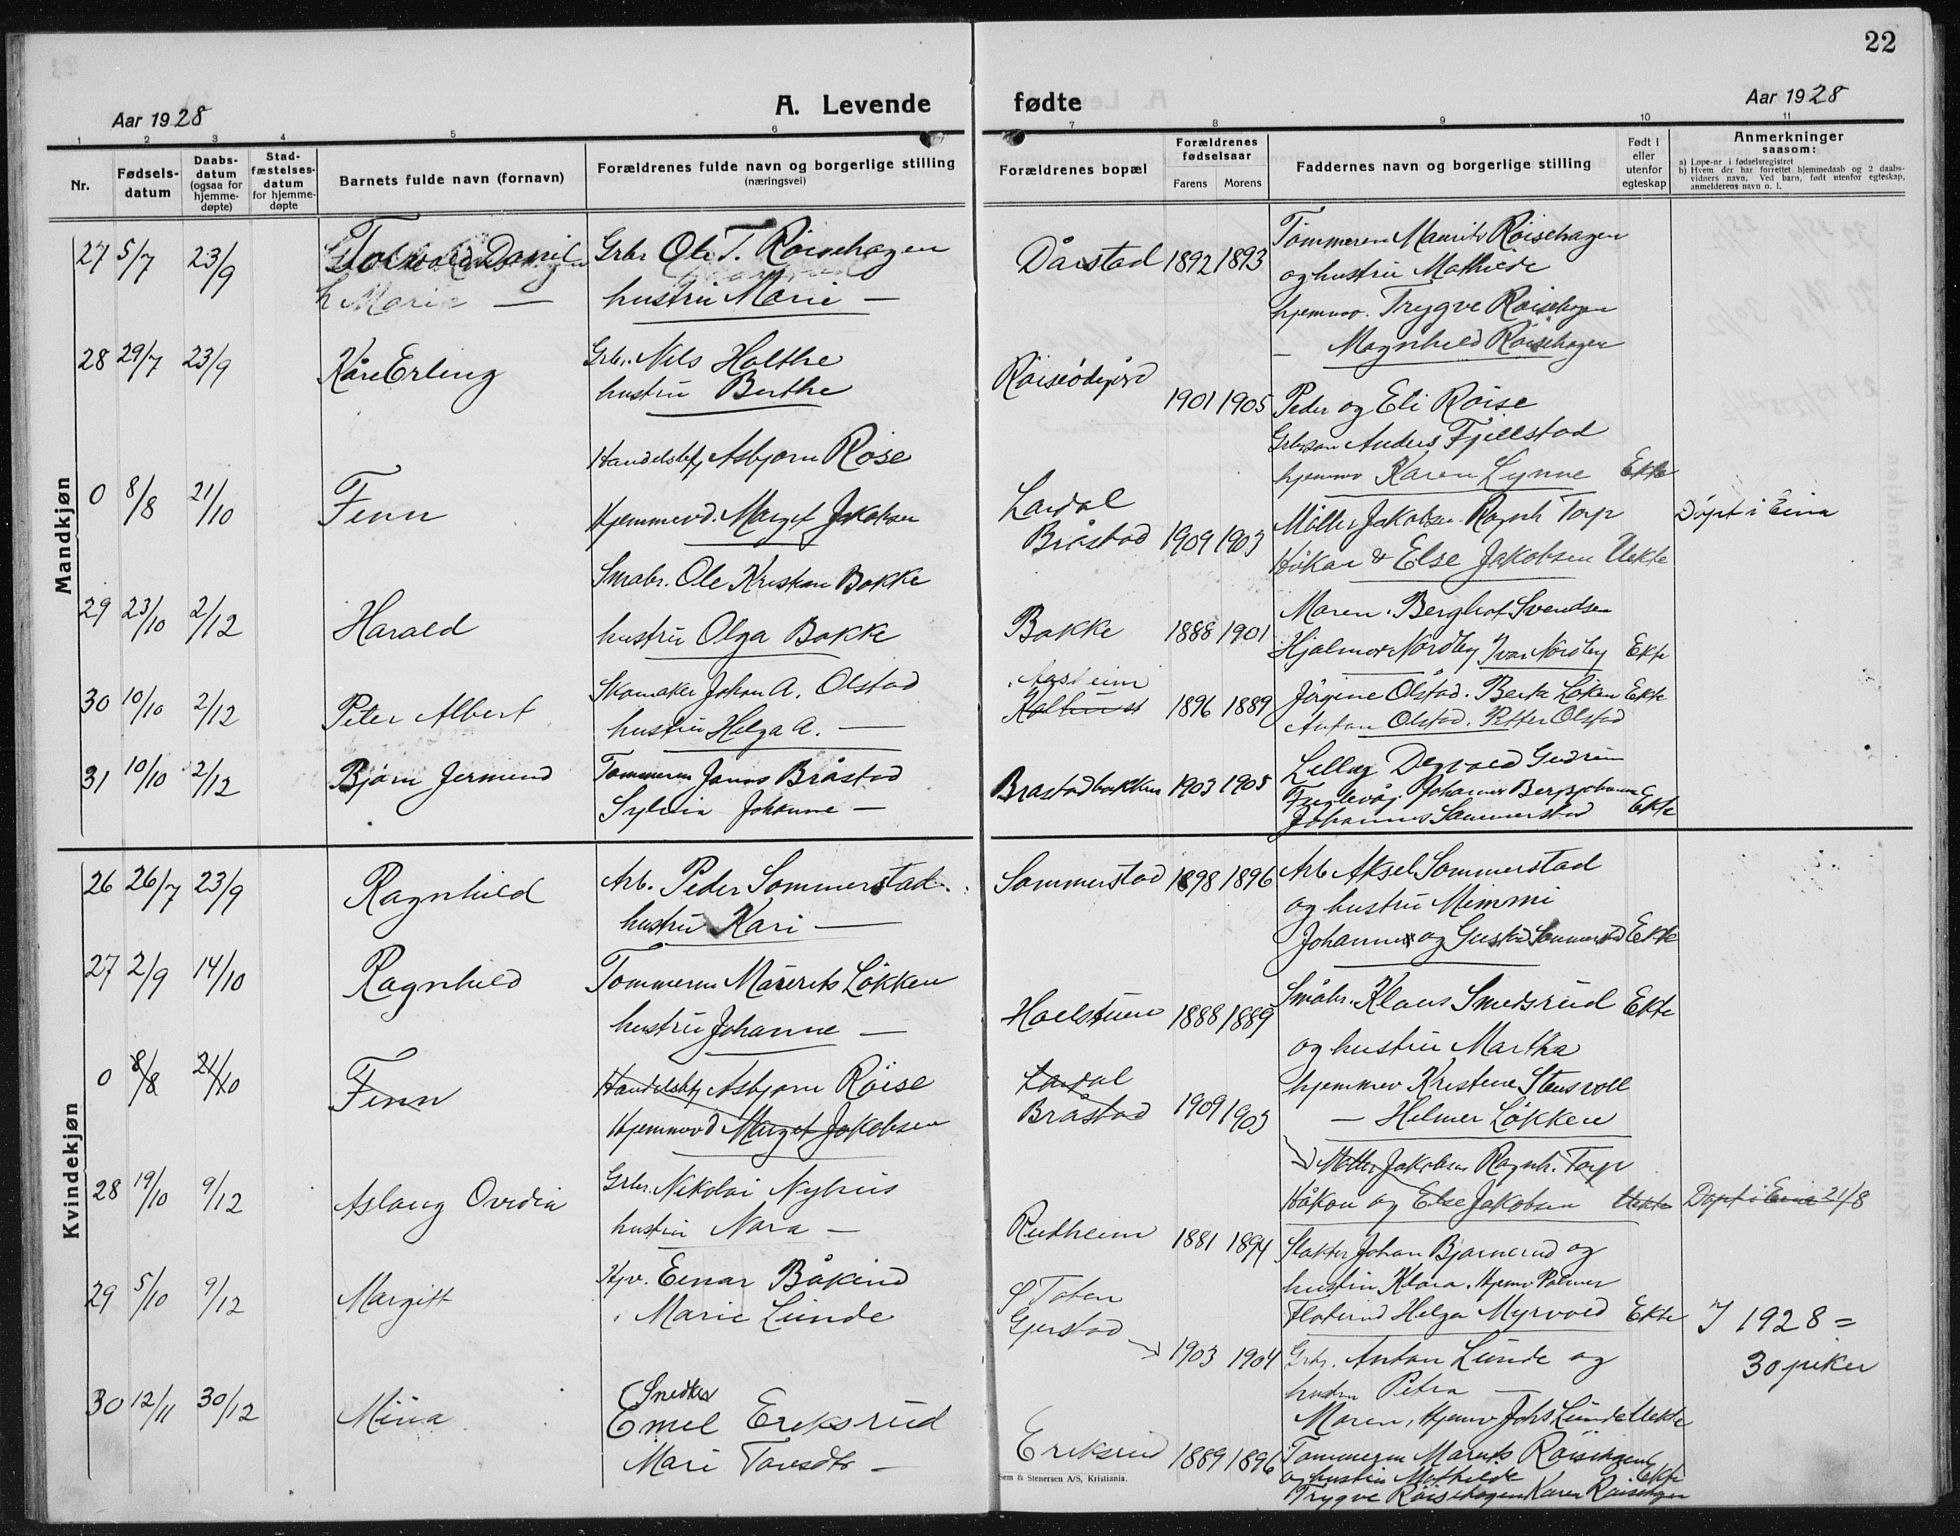 22
Aar 1928
A. Levende
fødte
Aar 1928
1
2
3
4
5
6
7
8
9
10
11
Nr.
Fødsels-
datum
Daabs-
datum
(ogsaa for
hjemme-
døpte)
Stad-
fæstelses-
datum
for hjemme-
døpte
Barnets fulde navn (fornavn)
Forældrenes fulde navn og borgerlige stilling
(næringsvei)
Forældrenes bopæl
Forældrenes
fødselsaar
Farens
Morens
Faddernes navn og borgerlige stilling
Født i
eller
utenfor
egteskap
Anmerkninger
saasom:
a) Løpe-nr i fødselsregistret
b) Hvem der har forrettet hjemmedaab og 2 daabs-
vidners navn. Ved barn, født utenfor egteskap,
anmelderens navn o. l.
Mandkjøn
27 5/7 23/9 Torvald Daniel Grbr Ole T. Røisehagen Dårstad 1892 1893 Tømmerm Maurits Røisehagen
h Marie — hustru Marie — og hustru Mathilde
hjemmv. Trygve Røisehagen
— Magnhild Røisehagen
28 29/7 23/9 Kåre Erling Grbr. Nils Holthe Røiseødegård
hustru Berthe 1901 1905 Peder og Eli Røise
Grbrsøn Anders Fjellstad
Handelsbetj Asbjørn Røise hjemmv Karen Lynne Ekte
0 8/8 21/10 Finn Hjemmevd. Margit Jakobsen Lardal
Bråstad 1909 1903 Møller Jakobsen Ragnh Torp Døpt i Eina
Håkon & Else Jakobsen Uekte
Småbr. Ole Kristian Bakke
29 23/10 2/12 Harald hustru Olga Bakke Bakke 1888 1901 Maren. Berghof Svendsen
Hjalmar Nordby Ivar Nordby Ekte
30 10/10 2/12 Peter Albert Skomaker Johan A. Olstad 1896 1889 Jørgine Olstad. Berte Løken Ekte
hustru Helga A. — Anton Olstad. Petter Olstad
31 10/10 2/12 Bjørn Jermund Tømmerm Jonas Bråstad Bråstadbakken 1903 1905
Sylvia Johanne — Johannes Sammerstad Ekte
Kvindekjøn
26 26/7 23/9 Ragnhild Arb. Peder Sommerstad Sommerstad 1898 1896 Arb Aksel Sommerstad
hustru Kari — og hustru Mimmi
Johannes og Gustav Sommerstd Ekte
27 2/9 14/10 Ragnhild Tømmerm Maurits Løkken Småbr. Klaus Smedsrud Ekte
hustru Johanne — Hoelstuen 1888 1889 og hustru Martha
hjemmev Kristine Stensvoll
— Helmer Løkken
0 8/8 21/10 Finn Handelsbetj Asbjørn Røise Lardal
Hjemmevd Margit Jakobsen Bråstad 1909 1903 Møller Jakobsen Ragnh. Torp
Håkon og Else Jakobsen Uekte Døpt i Eina 21/8
28 19/10 9/12 Aslaug Ovidia Grbr. Nikolai Nyhus Rudheim 1881 1894 Slakter Johan Bjørnerud og
hustru Nora — hustru Klara. Hjemv Palmer
Helga Myrvold Ekte
29 5/10 9/12 Margitt Einar Båkind Ø Toten
Marie Lunde Gjerstad 1903 1904 Grbr. Anton Lunde og
hustru Petra —
Maren, Hjemv Johs Lunde Uekte
I 1928 =
30 piker
30 12/11 30/12 Mina Snedker
Emil Eriksrud Eriksrud 1889 1896 Tømmerm Marits Røisehagen
Mari Torsdtr — og hustru Mathilde Ekte
Trygve Røisehagen Karen Røisehagen
Sem & Stenersen A/S, Kristiania.